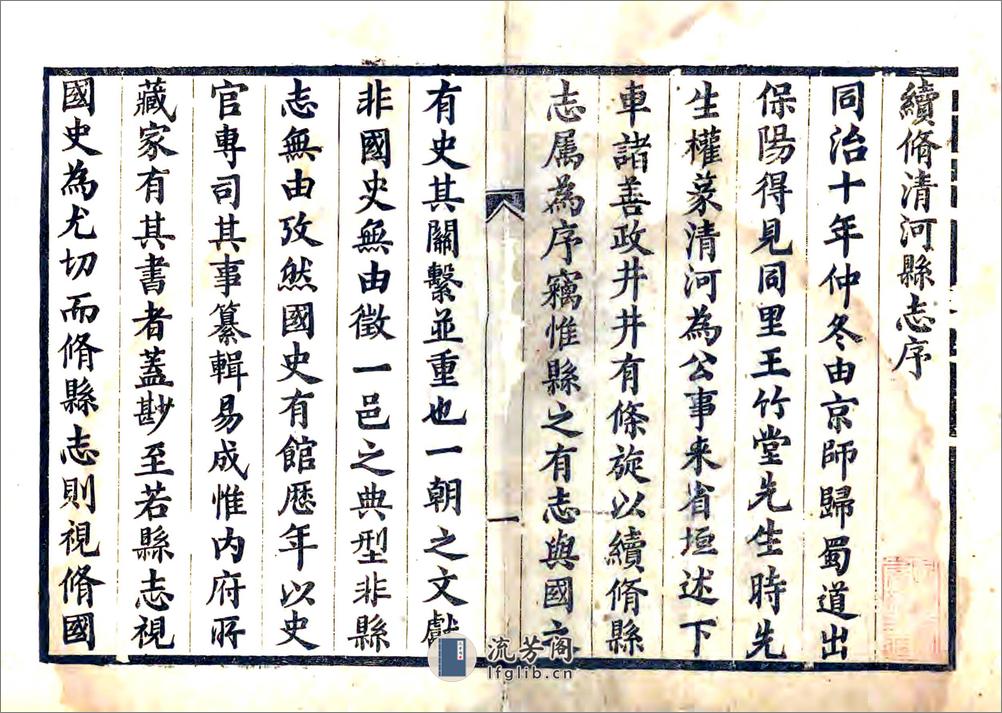 續脩清河縣志序
同治十年仲冬由京師歸蜀道出
保陽得見同里王竹堂先生時先
生權篆清河為公事来省垣述下
車諸善政井井有條旋以續脩縣
志属為序竊惟縣之有志與國之
一
有史其關繫並重也一朝之文獻
非國史無由徵一邑之典型非縣
志無由攷然國史有館歴年以史
官專司其事纂輯易成惟内府所
藏家有其書者蓋尠至若縣志視
國史為尤切而脩縣志則視脩國
流芳阁
lfglib.cn